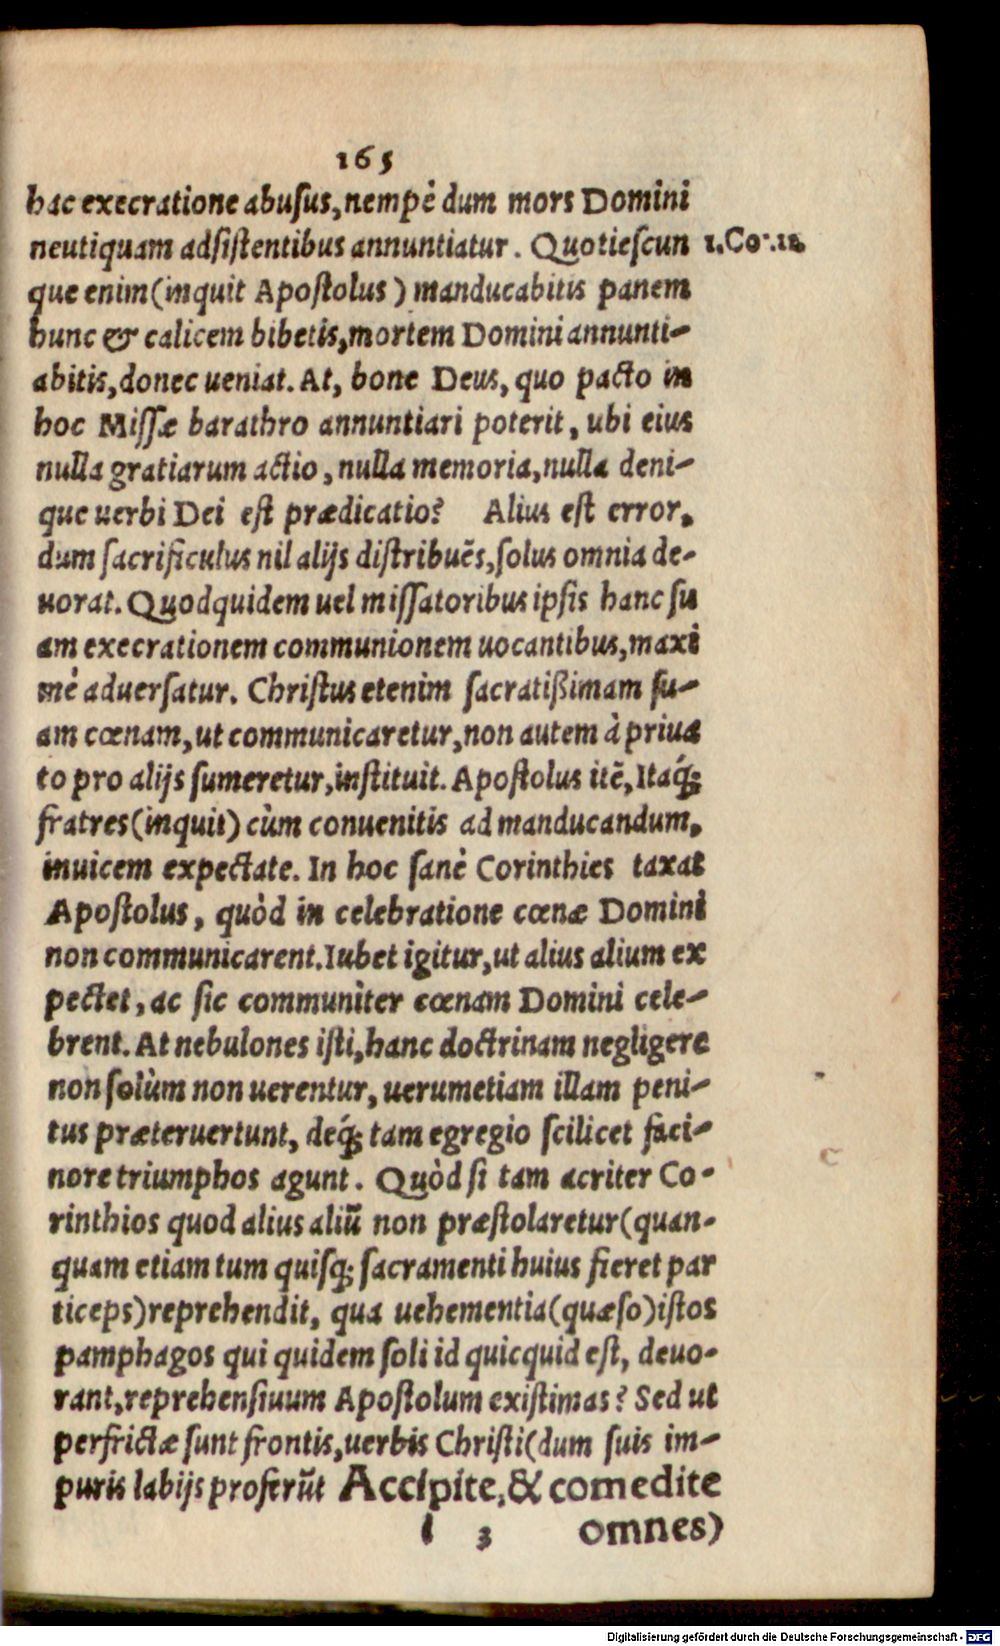 165
hac execratione abusus, nempè dum mors Domini
neutiquam adsistentibus annuntiatur. Quotiescun
1. Cor. 11.
que enim (inquit Apostolus) manducabitis panem
hunc & calicem bibetis, mortem Domini annunti-
abitis, donec ueniat. At, bone Deus, quo pacto in
hoc Missæ barathro annuntiari poterit, ubi eius
nulla gratiarum actio, nulla memoria, nulla deni-
que uerbi Dei est prædicatio? Alius est error,
dum sacrificulus nil alijs distribuẽs, solus omnia de-
uorat. Quodquidem uel missatoribus ipsis hanc su
am execrationem communionem uocantibus, maxi
mè aduersatur. Christus etenim sacratißimam su-
am cœnam, ut communicaretur, non autem à priua
to pro alijs sumeretur, instituit. Apostolus itẽ, Itaq́;
fratres (inquit) cùm conuenitis ad manducandum,
inuicem expectate. In hoc sanè Corinthios taxat
Apostolus, quòd in celebratione cœnæ Domini
non communicarent. Iubet igitur, ut alius alium ex
pectet, ac sic communiter cœnam Domini cele-
brent. At nebulones isti, hanc doctrinam negligere
non solùm non uerentur, uerumetiam illam peni-
tus præteruertunt, deq́; tam egregio scilicet faci-
nore triumphos agunt. Quòd si tam acriter Co-
rinthios quod alius aliũ non præstolaretur (quan-
quam etiam tum quisq; sacramenti huius fieret par
ticeps) reprehendit, qua uehementia (quæso) istos
pamphagos qui quidem soli id quicquid est, deuo-
rant, reprehensiuum Apostolum existimas? Sed ut
perfrictæ sunt frontis, uerbis Christi (dum suis im-
puris labijs proferũt Accipite, & comedite
l 3 omnes)
Digitalisierung gefördert durch die Deutsche Forschungsgemeinschaft - DFG